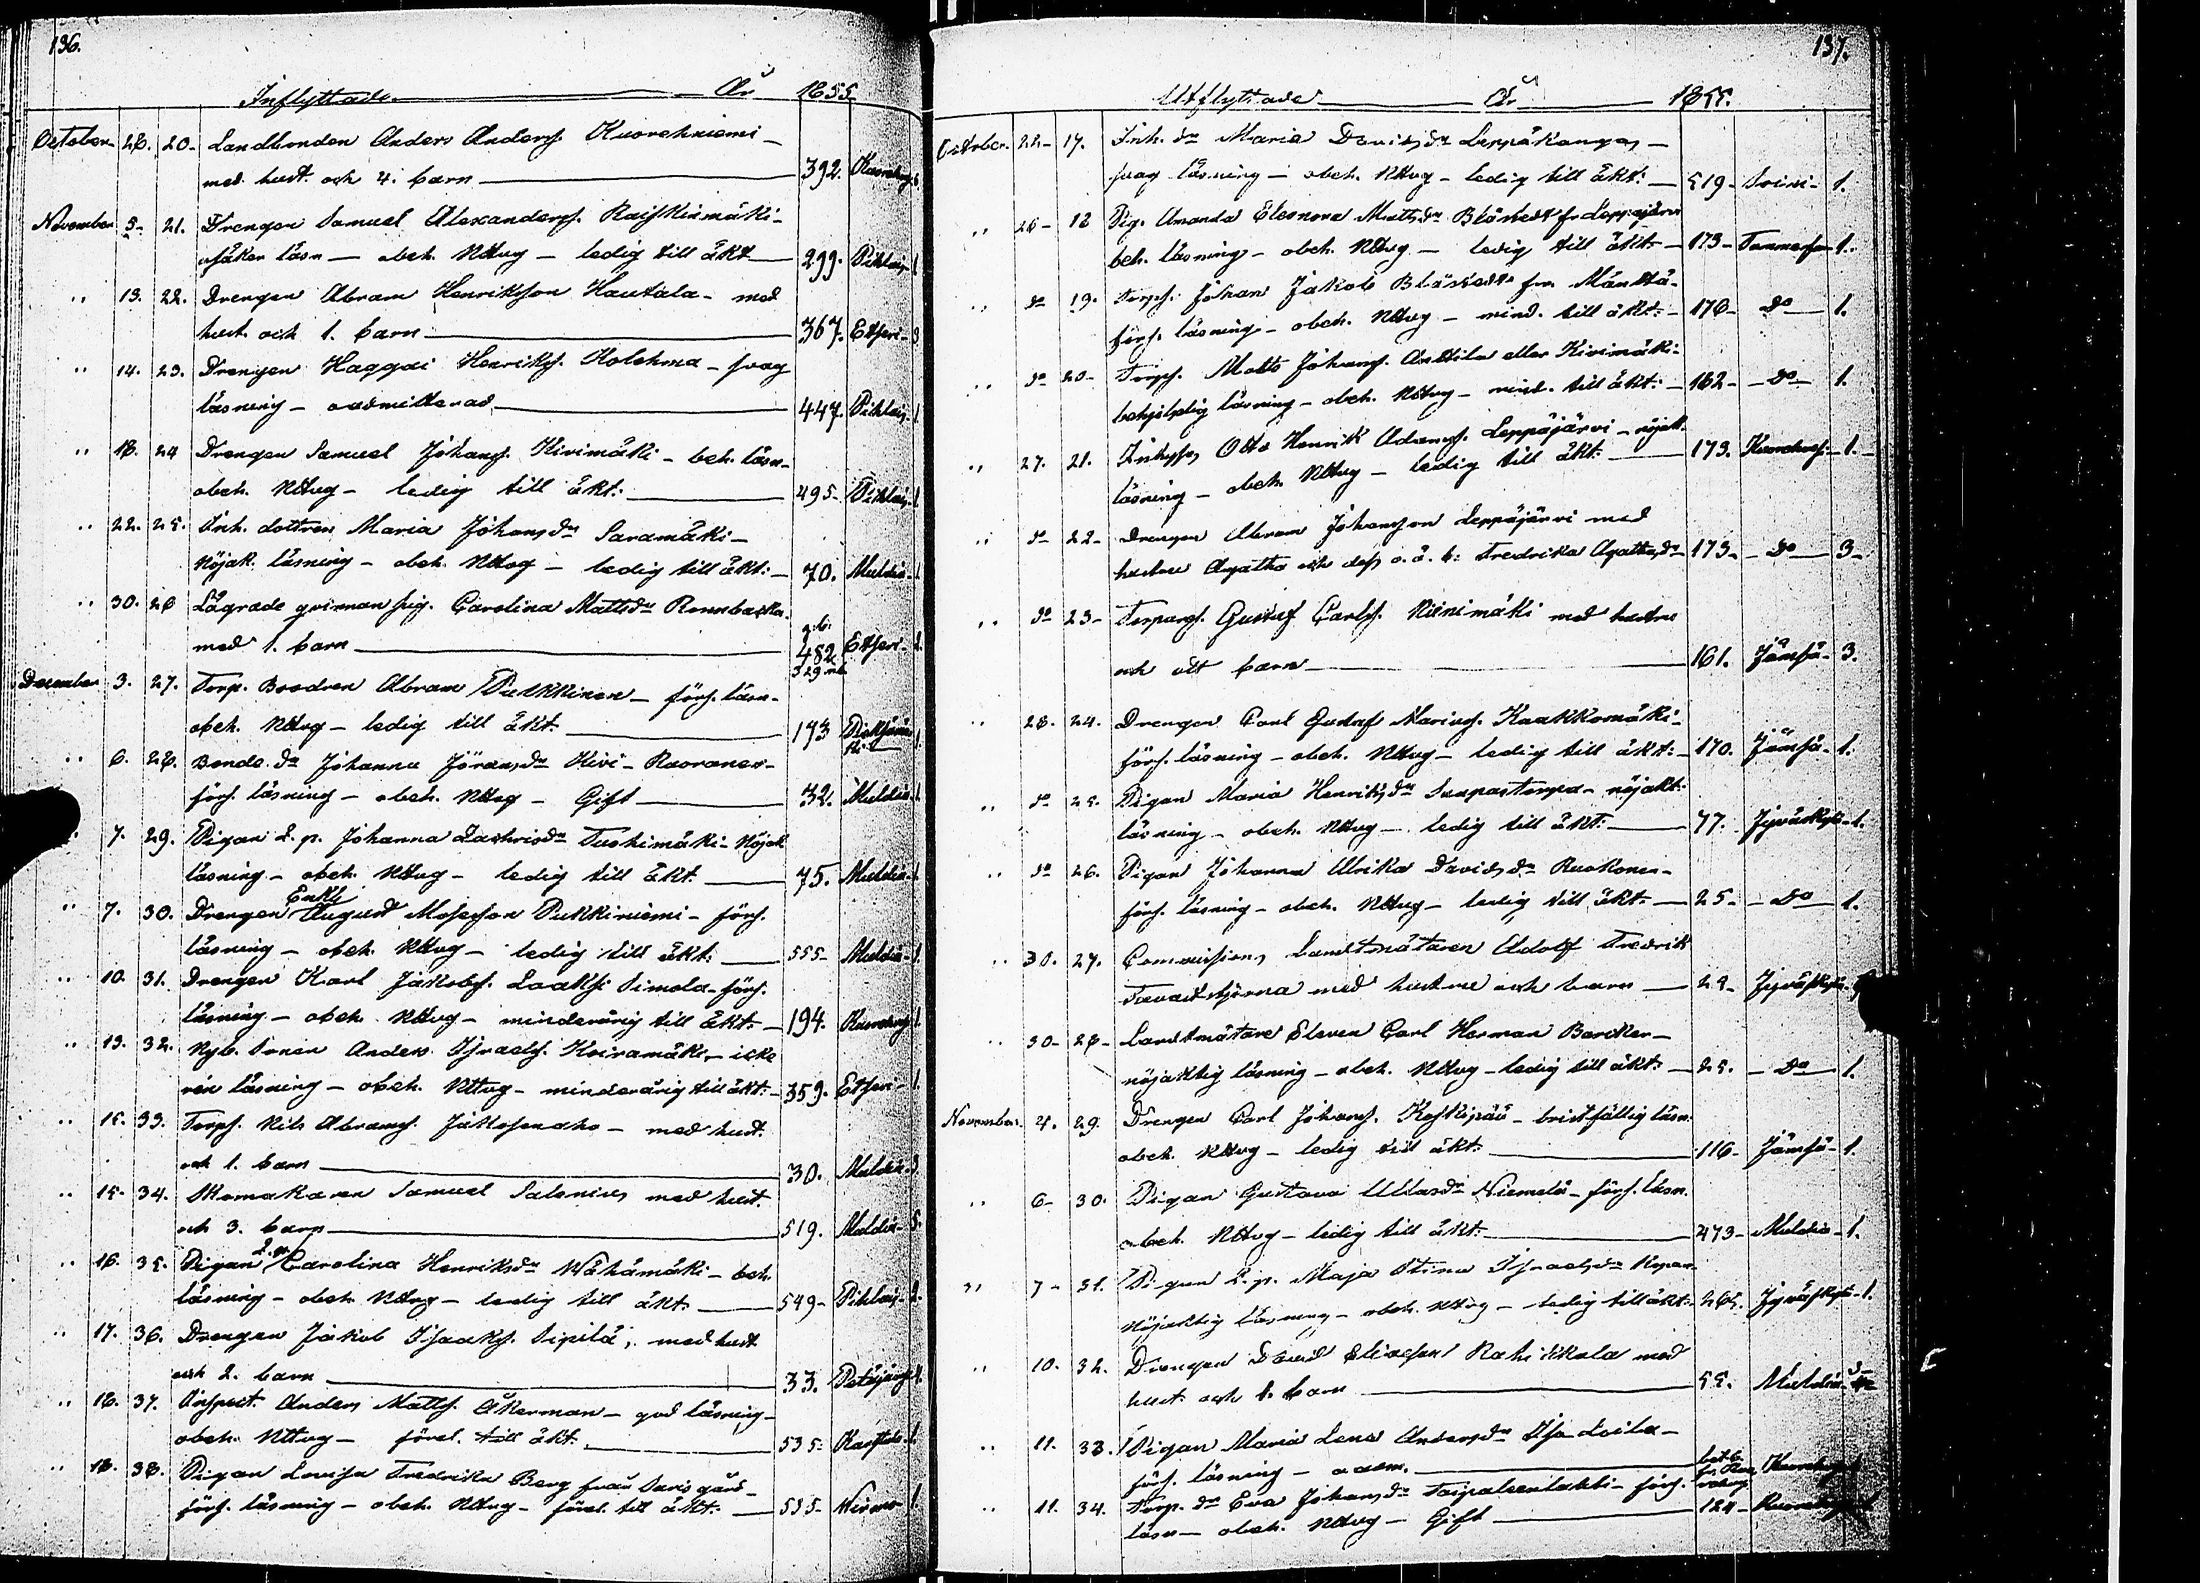 136.
Inflyttade År 1855
October 26. 20. Landbonden Anders Anderss. Kuorehniemi
med hust. och 4. barn 392. Ruovesi
November 5. 21. Drengen Samuel Alexanderss. Raiskinmäki
osäker läsn — obeh. Nttvg — ledig till äkt. 299. Pihlaj. 1
" 13. 22. Drengen Abram Henriksson Hautala — med
hust. och 1. barn 367. Etseri 3
" 14. 23. Drengen Haggai Henrikss. Kolehma — svag
läsning — oadmitterad 447. Pihlaj. 1
" 18. 24 Drengen Samuel Johanss. Kivimäki — beh. läsn.
obeh. Nttvg — ledig till äkt: 495. Pihlaj. 1
" 22. 25. Inh. dottren Maria Johansdr Saramäki
Nöjak. läsning — obeh. Nttvg — ledig till äkt: 70. Muldia 1
" 30. 26 Lägrade qvinnan pig. Carolina Mattsdr Rennbacka
med 1. barn 482 Etseri 2
December 3. 27. Torp. Brodren Abram Pukkinen — förs. läsn.
obeh. Nttvg — ledig till äkt. 193
" 6. 28. Bonde dr Johanna Jöransdr Kivi-Ruoranen
förs. läsning — obeh. Nttvg — Gift 32. Muldia 1
" 7. 29. Pigan L. p. Johanna Zachrisdr Tuohimäki — Nöjak
läsning — obeh. Nttvg — ledig till äkt 75. Muldia 1
Enkl
" 7. 30. Drengen August Mosesson Pukkiniemi — förs.
läsning — obeh. Nttvg — ledig till äkt: 555 Muldia 1.
" 10. 31. Drengen Karl Jakobss. Laaksi Simola — förs.
läsning — obeh. Nttvg — minderårig till äkt. 194. 1
" 13. 32. Nyb. Sonen Anders Israelss. Koiramäki — icke
ren läsning — obeh. Nttvg — minderårig till äkt: 359. Etseri 1
" 15. 33. Torps. Nils Abramss. Jällosenaho — med hust.
och 1. barn 30. Muldia 3
" 15. 34. Skomakaren Samuel Salonius med hust.
och 3. barn 519. Muldia 5.
" 16. 35. Pigan L. p. Carolina Henriksdr Wähämäki — beh
läsning — obeh. Nttvg — ledig till äkt. 549 Pihlaj.
" 17. 36. Drengen Jakob Isaakss. Sipilä, med hust
och 2. barn 33. Petäjäv. 4
" 18. 37. Inspect. Anders Mattss. Åkerman — god läsning
obeh. Nttvg — förel. till äkt. 535 1
" 18. 38. Pigan Lovisa Fredrika Berg från
förs. läsning — obeh. Nttvg — förel. till äkt. 535 1
137.
Utflyttade År 1855.
October. 22 17. Inh. dr Maria Davidsdr Leppäkangas
svag läsning — obeh. Nttvg — ledig till äkt: 519 Soini 1.
" 26 18 Pig. Amanda Eleonora Mattsdr Blåstedt fr Leppäjärvi
beh. läsning — obeh. Nttvg — ledig till äkt 173 Tammerfors 1.
" do 19. Torps. Johan Jakob Blåstedt från Mänttä
förs. läsning — obeh. Nttvg — mind. till äkt: 176 Do 1.
" do 20 Torps. Matts Johanss. Anttila eller Kivimäki
behjelplig läsning — obeh. Nttvg — mind. till äkt: 162 Do 1.
" 27. 21. Inhyss. Otto Henrik Adamss. Leppäjärvi — nöjakt.
läsning — obeh. Nttvg — ledig till äkt: 173. 1.
" do 22 Drengen Abram Johansson Leppäjärvi med
hustru Agatha och dess o. ä. b: Fredrika Agathasdr 173 Do 3
" do 23 Torpars. Gustaf Carlss. Niinimäki med hustru
och ett barn 161. Jämsä 3.
" 28. 24. Drengen Carl Gustaf Mariæs. Kaakkomäki
förs. läsning — obeh. Nttvg — ledig till äkt: 170. Jämsä 1.
" do 25. Pigan Maria Henriksdr — nöjakt:
läsning — obeh. Nttvg — ledig till äkt: 77. Jyväskylä 1.
" do 26. Pigan Johanna Ulrika Davidsdr Ruokonen
förs. läsning — obeh. Nttvg — ledig till äkt: 25 Do 1.
" 30. 27. Commissions Landtmätaren Adolf Fredrik
Tavaststjerna med hustru och barn 25 Jyväskylä
" 30 28 Landtmätare Eleven Carl Herman Barcker
nöjaktig läsning — obeh. Nttvg — ledig till äkt: 25. Do 1.
November. 4. 29. Drengen Carl Johanss. Koskipää — bristfällig läsn.
obeh. Nttvg — ledig till äkt: 116 Jämsä 1.
" 6 30. Pigan Gustava Ullasdr Niemelä — förs. läsn.
obeh. Nttvg — ledig till äkt: 473 Muldia 1.
" 7 31. Pigan L. p. Maja Stina Israelsdr
Nöjaktig läsning — obeh. Nttvg — ledig till äkt: 265. Jyväskylä 1.
" 10. 32. Drengen David Eliasson Rahikkala med
hust. och 1. barn 55. Muldia 3
" 11. 33. Pigan Maria Lena Andersdr Iso Loila
förs. läsning — oadm.
" 11. 34. Torp. dr Eva Johansdr Taipaleenlahti — förs.
läsn — obeh. Nttvg — Gift 124